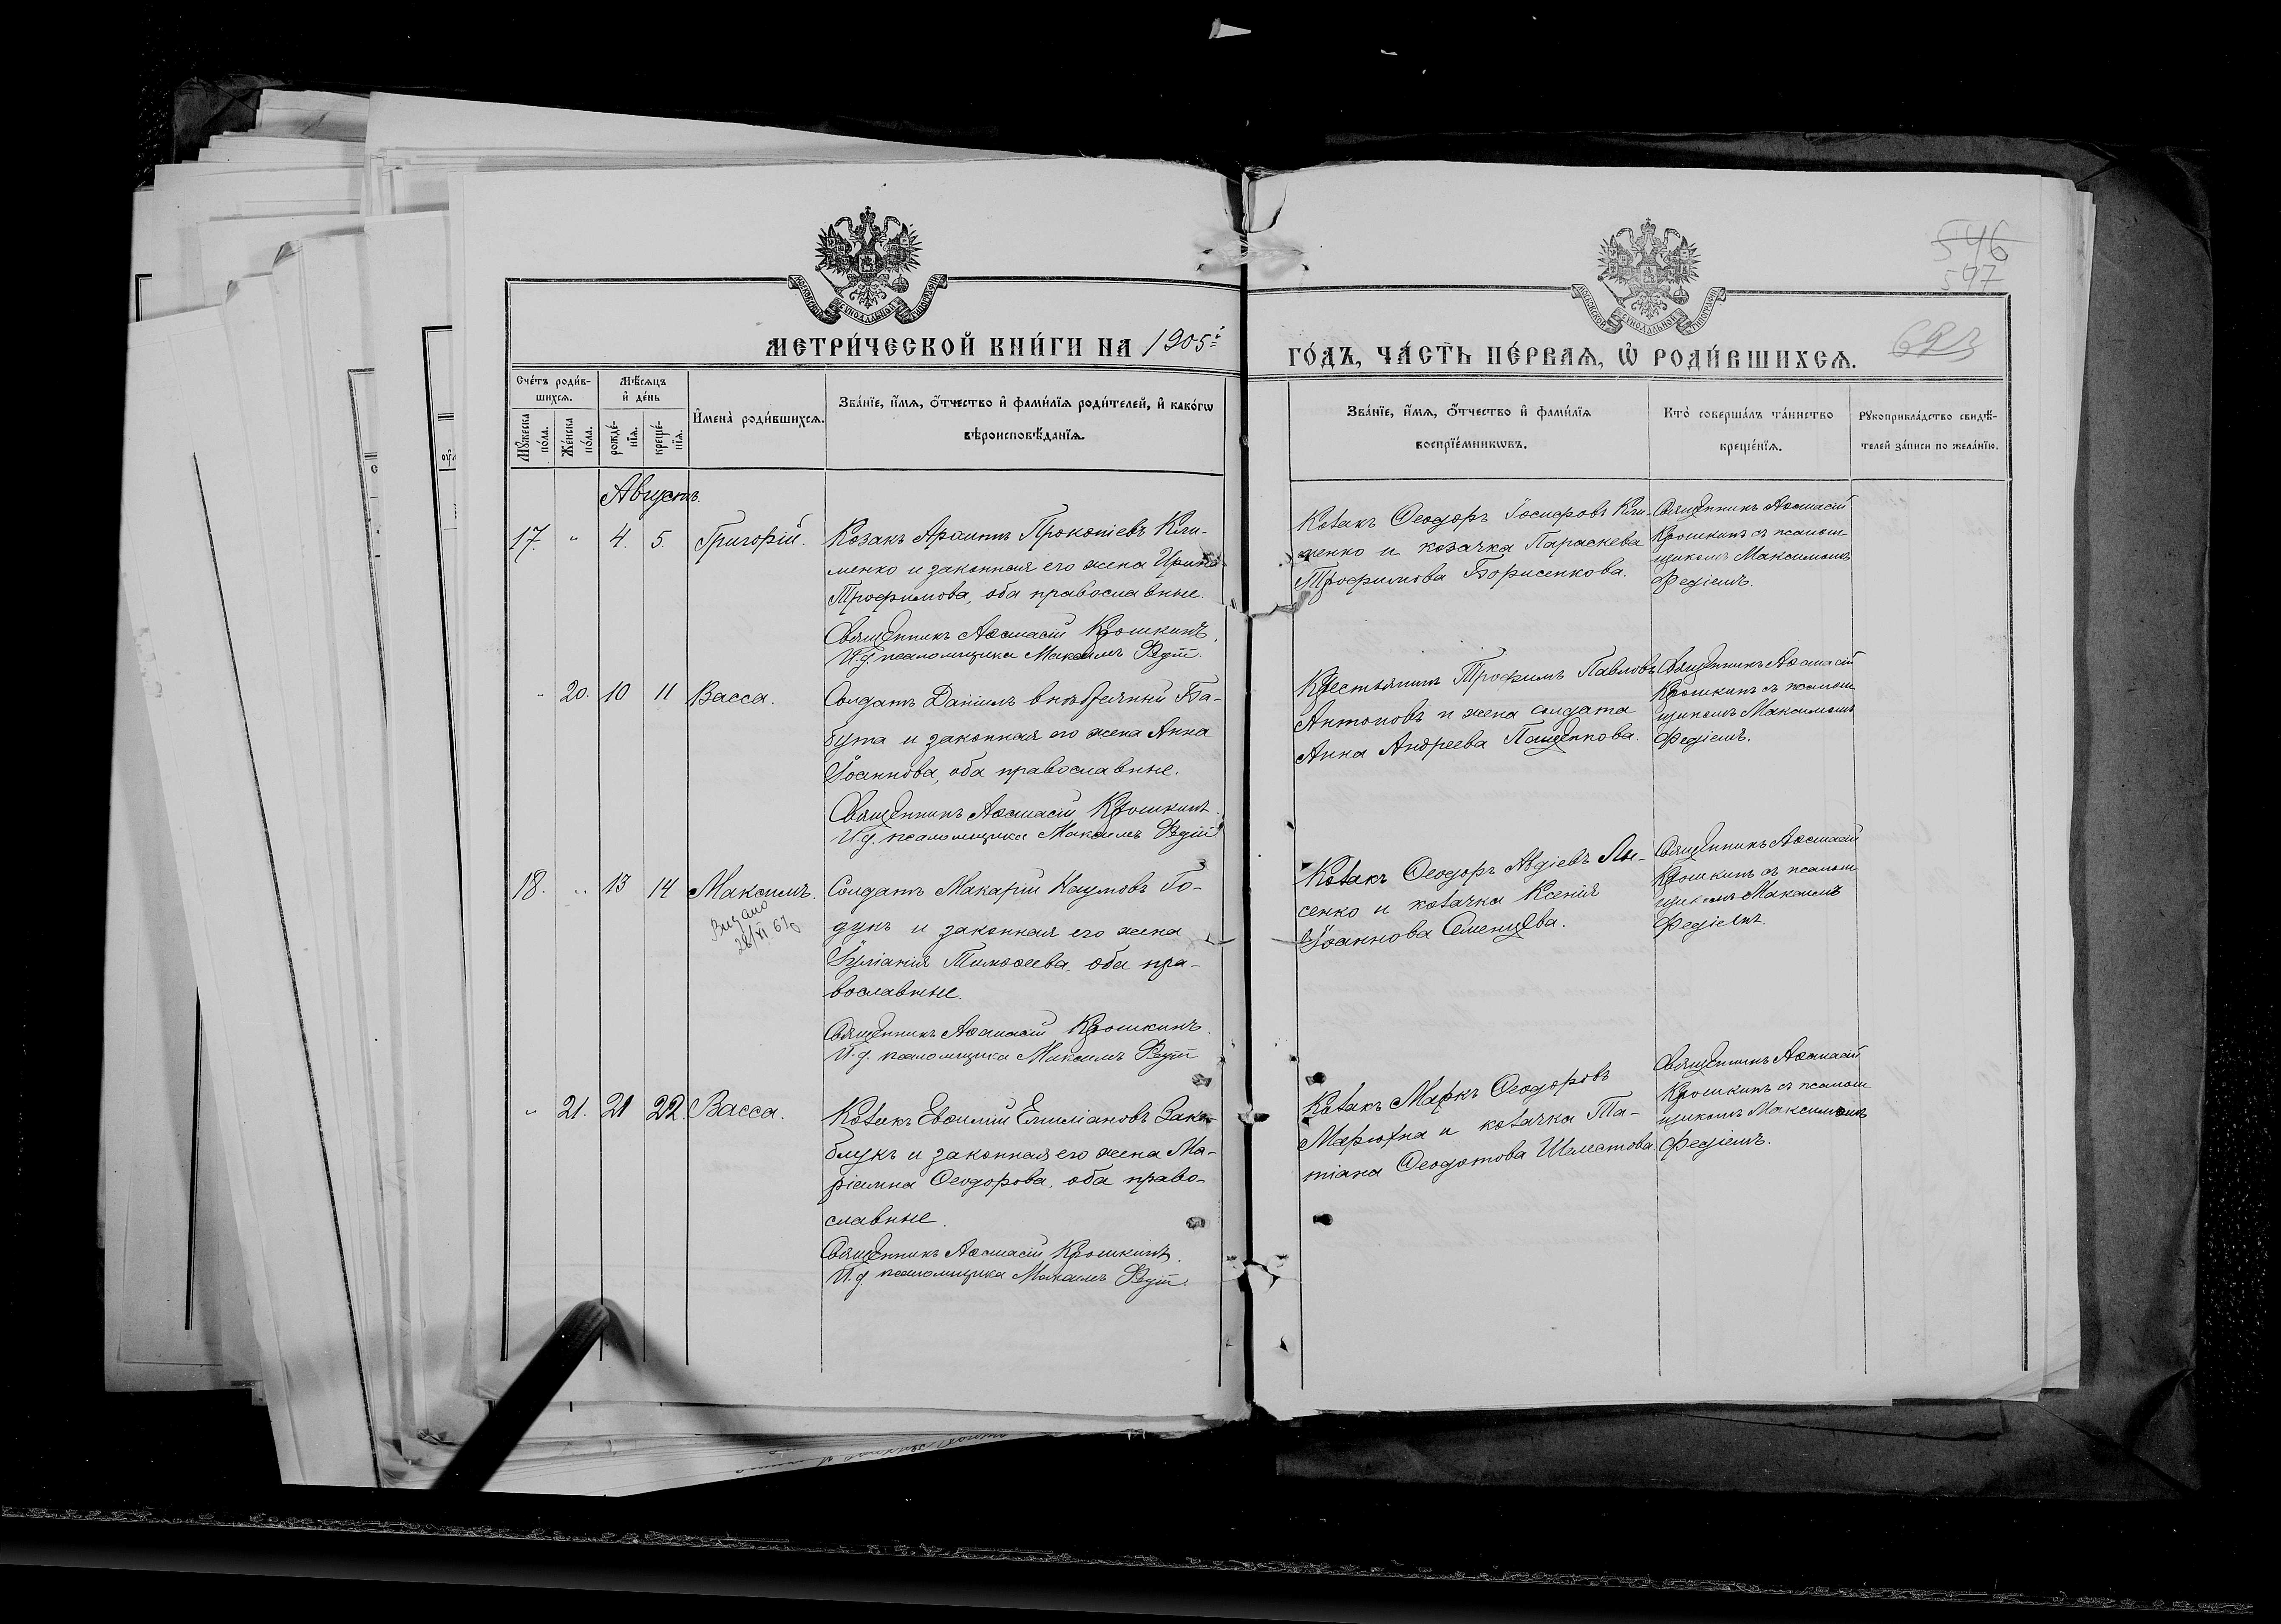 546
547
МОСКОВСКОЙ СѴНОДАЛЬНОЙ ТИПОГРАФІИ
МОСКОВСКОЙ СѴНОДАЛЬНОЙ ТИПОГРАФІИ
МЕТРИ́ЧЕСКОЙ КНИ́ГИ НА 1905й
ГО́ДЪ, ЧА́СТЬ ПЕ́РВАЯ, Ѡ РОДИ́ВШИХСЯ.
Сче́тъ роди́в-
шихся.
Мѣ́сяцъ
и҆ де́нь
Мꙋ́жеска
по́ла.
Же́нска
по́ла.
рожде́-
нїѧ.
креще́-
нїѧ.
И҆мена̀ роди́вшихсѧ.
Зва́нїе, и҆́мѧ, ѻ҆́тчество и҆ фами́лїѧ роди́телей, и҆ како́гѡ
вѣроисповѣ́данїѧ.
Зва́нїе, и҆́мѧ, ѻ҆́тчество и҆ фами́лїѧ
воспрїе́мникѡвъ.
Кто̀ соверша́лъ та́инство
креще́нїѧ.
Рꙋкоприкла́дство свидѣ́-
телей за́писи по жела́нїю.
Августъ.
17. " 4. 5. Григорій.
Козакъ Арѳимъ Прокопіевъ Кли-
менко и законная его жена Ирина
Трофимова, оба православные.
Священникъ Аѳанасій Крошкинъ.
И. д. псаломщика Максимъ Федій.
Козакъ Ѳеодоръ Іосифовъ Кли-
менко и козачка Параскева
Трофимова Борисенкова.
Священникъ Аѳанасій
Крошкинъ съ псалом-
щикомъ Максимомъ
Федіемъ.
" 20. 10 11 Васса.
Солдатъ Даніилъ внѣбрачный Ба-
бута и законная его жена Анна
Іоаннова, оба православные.
Священникъ Аѳанасій Крошкинъ.
И. д. псаломщика Максимъ Федій
Крестьянинъ Трофимъ Павловъ
Антоновъ и жена солдата
Анна Андреева Пащенкова.
Священникъ Аѳанасій
Крошкинъ съ псалом-
щикомъ Максимомъ
Федіемъ.
18. " 13 14 Максимъ.
Видано
28/XI 67
Солдатъ Макарій Наумовъ Го-
дунъ и законная его жена
Іуліанія Тимоѳеева, оба пра-
вославные.
Священникъ Аѳанасій Крошкинъ.
И. д. псаломщика Максимъ Федій
Козакъ Ѳеодоръ Авдіевъ Лы-
сенко и козачка Ксенія
Іоаннова Семенцева.
Священникъ Аѳанасій
Крошкинъ съ псалом-
щикомъ Максимомъ
Федіемъ.
" 21. 21 22. Васса.
Козакъ Евѳимій Емиліановъ Зака-
блукъ и законная его жена Ма-
ріамна Ѳеодорова, оба право-
славные.
Священникъ Аѳанасій Крошкинъ.
И. д. псаломщика Максимъ Федій.
Козакъ Маркъ Ѳеодоровъ
Марюхна и козачка Та-
тіана Ѳеодотова Шеметова.
Священникъ Аѳанасій
Крошкинъ съ псалом-
щикомъ Максимомъ
Федіемъ.